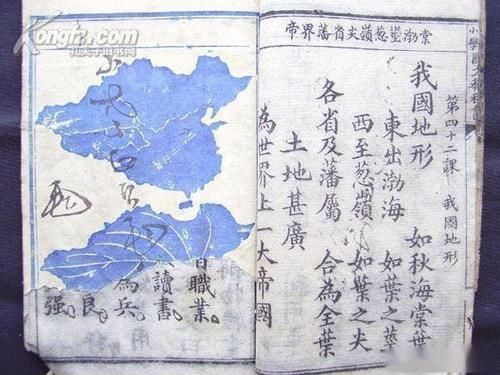 第四十二課 我國地形
棠渤莖葱嶺尖省藩界帝
我國地形 如秋海棠葉
東出渤海 如葉之莖
西至葱嶺 如葉之尖
各省及藩屬 合為全葉
土地甚廣
為世界上一大帝國
職業。
讀書。
為兵。
良。
强。
Kongfz.com
孔夫子旧书网